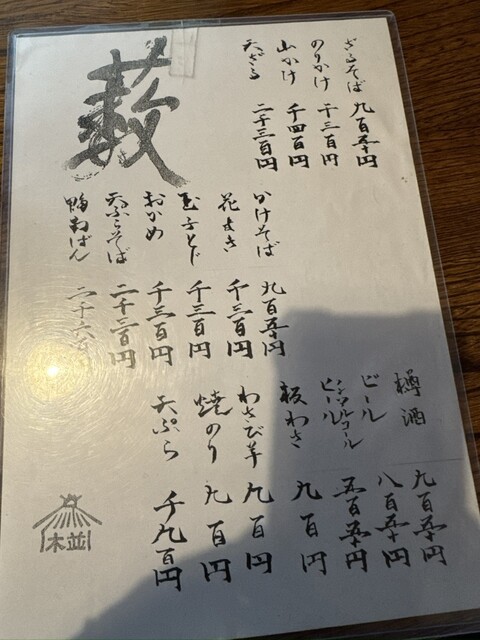 藪
ざるそば 九百五十円
のりかけ 千三百円
山かけ 千四百円
天ざる 二千三百円
かけそば 九百五十円
花まき 千三百円
玉子とじ 千三百円
おかめ 千三百円
天ぷらそば 二千三百円
鴨南ばん 二千六百円
樽酒 九百五十円
ビール 八百五十円
ノンアルコールビール 五百五十円
板わさ 九百円
わさび芋 九百円
焼のり 九百円
天ぷら 千九百円
並木